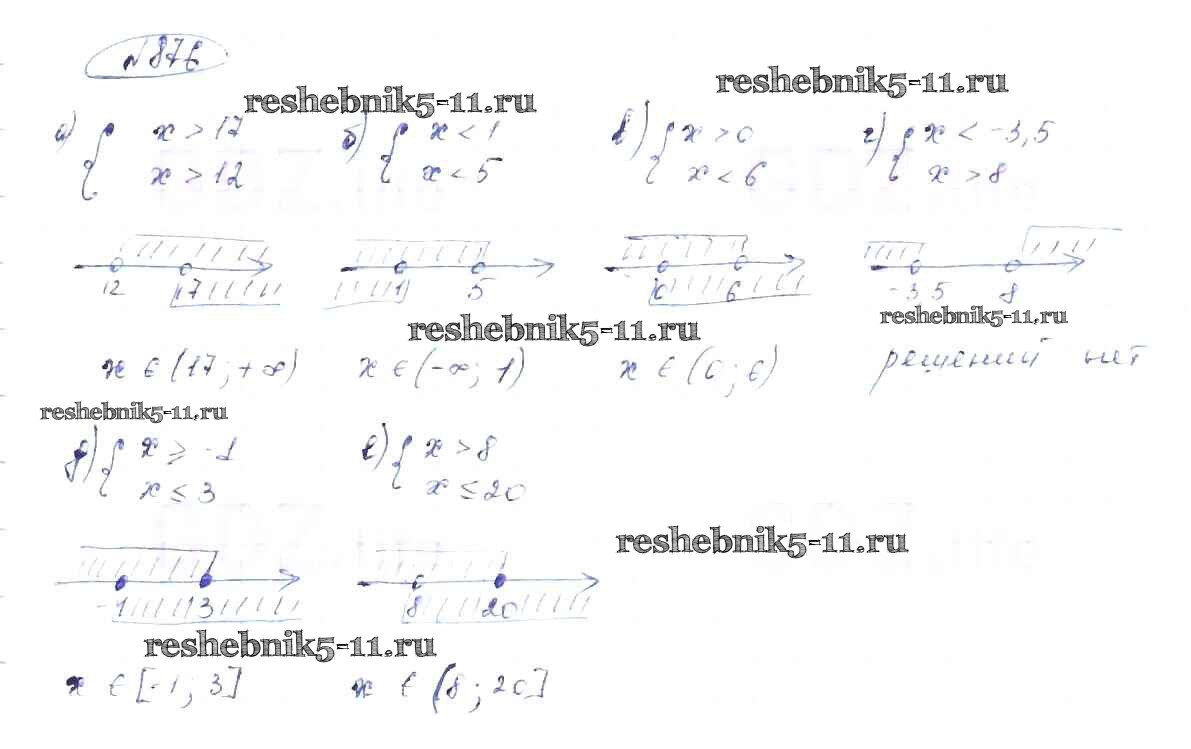 №876
reshebnik5-11.ru
reshebnik5-11.ru
а) { x > 17
x > 12
б) { x < 1
x < 5
в) { x > 0
x < 6
г) { x < -3,5
x > 8
12 17
1 5
0 6
-3,5 8
reshebnik5-11.ru
reshebnik5-11.ru
x ∈ (17; +∞)
x ∈ (-∞; 1)
x ∈ (0; 6)
решений нет
reshebnik5-11.ru
д) { x ≥ -1
x ≤ 3
е) { x > 8
x ≤ 20
reshebnik5-11.ru
-1 3
8 20
reshebnik5-11.ru
x ∈ [-1; 3]
x ∈ (8; 20]